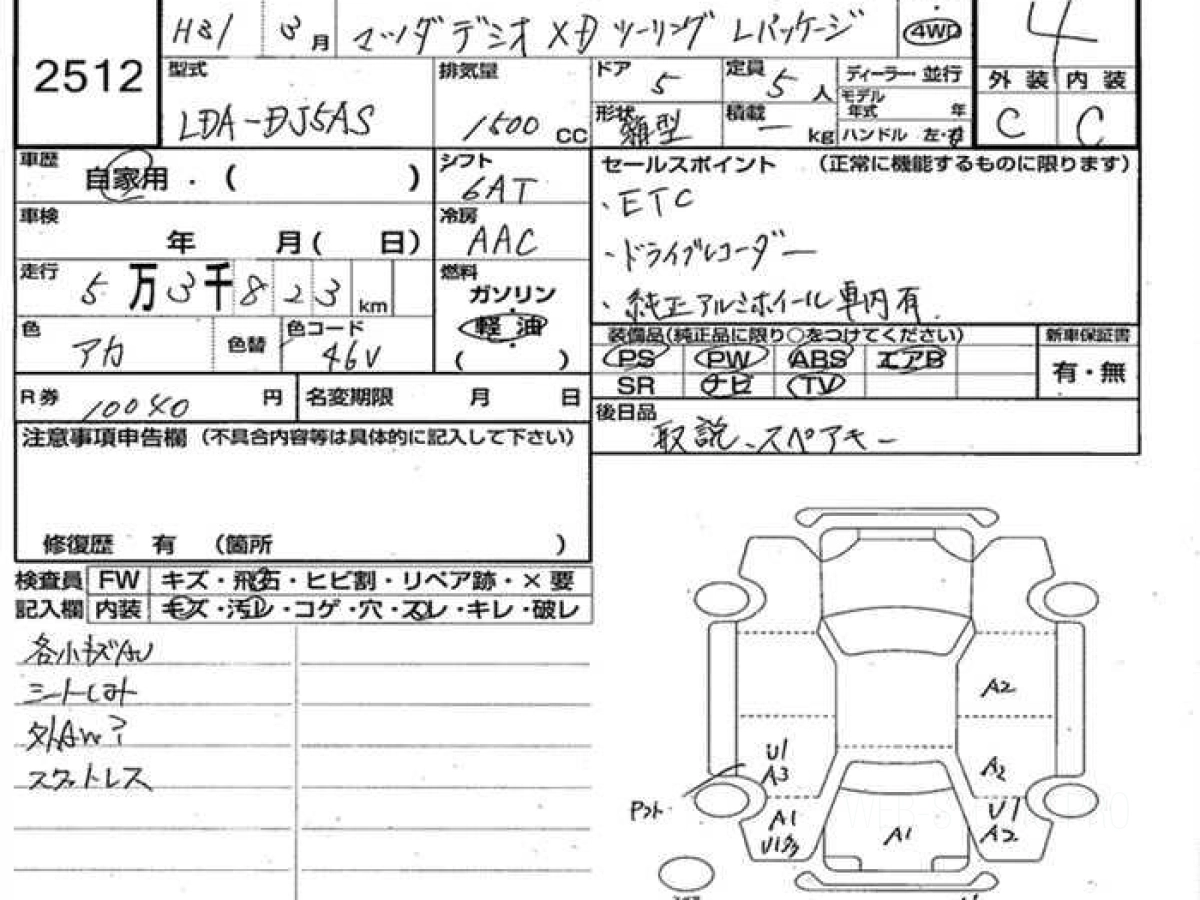 2512
H31 3月 マツダデミオ XD ツーリング Lパッケージ 4WD 4
型式 LDA-DJ5AS
排気量 1500 cc
ドア 5 定員 5人 ディーラー・並行
モデル年式 年
形状 箱型 積載 ー kg ハンドル 左・右
外装 内装
C C
車歴 自家用・( )
シフト 6AT
車検 年 月( 日)
冷房 AAC
走行 5万3千823 km
燃料 ガソリン・軽油・( )
色 アカ 色替 色コード 46V
セールスポイント (正常に機能するものに限ります)
・ETC
・ドライブレコーダー
・純正アルミホイール車内有
装備品(純正品に限り○をつけてください) 新車保証書
PS PW ABS エアB 有・無
SR ナビ TV
R券 10040 円 名変期限 月 日
後日品 取説、スペアキー
注意事項申告欄 (不具合内容等は具体的に記入して下さい)
修復歴 有 (箇所 )
検査員 FW キズ・飛石・ヒビ割・リペア跡・×要
記入欄 内装 キズ・汚レ・コゲ・穴・スレ・キレ・破レ
各小キズAU
シートしみ
スペアレス
A2
U1
A3
A2
A1
U1
A2
A1